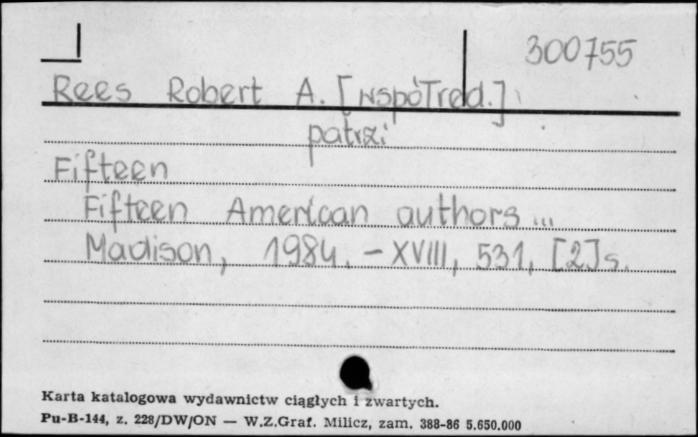 300755
Rees Robert A. [współred.]
patrz:
Fifteen
Fifteen American authors...
Madison, 1984. - XVIII, 531, [2]s.
Karta katalogowa wydawnictw ciągłych i zwartych.
Pu-B-144, z. 228/DW/ON — W.Z.Graf. Milicz, zam. 388-86 5.650.000